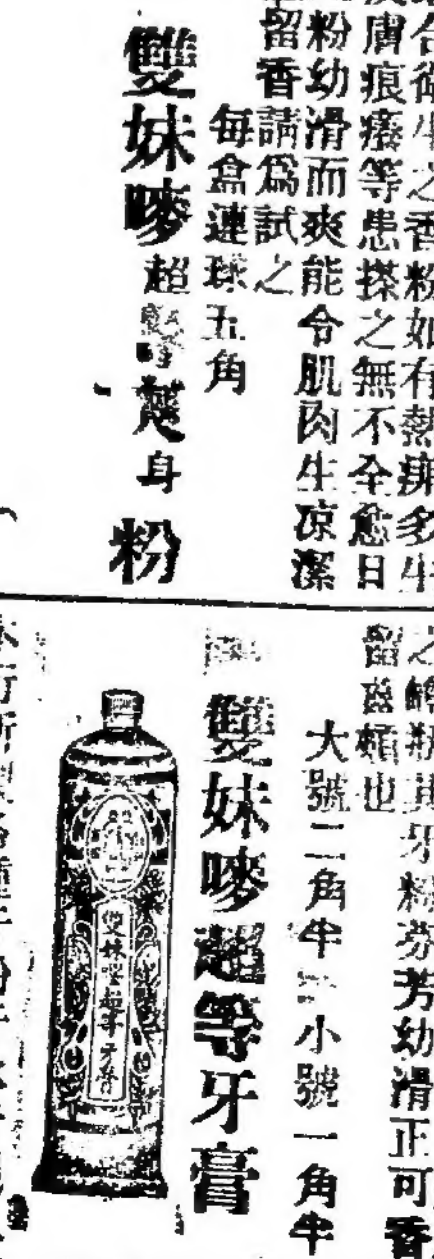 合衛生之香粉如有熱痱多生
膚痕癢等患搽之無不全愈日
粉幼滑而爽能令肌肉生凉潔
留香請爲試之
每盒連球五角
雙妹嘜超等爽身粉
之瓶其牙粉芬芳幼滑正可香
留齒頰也
大號二角半 小號一角半
雙妹嘜超等牙膏
雙妹嘜超等牙膏